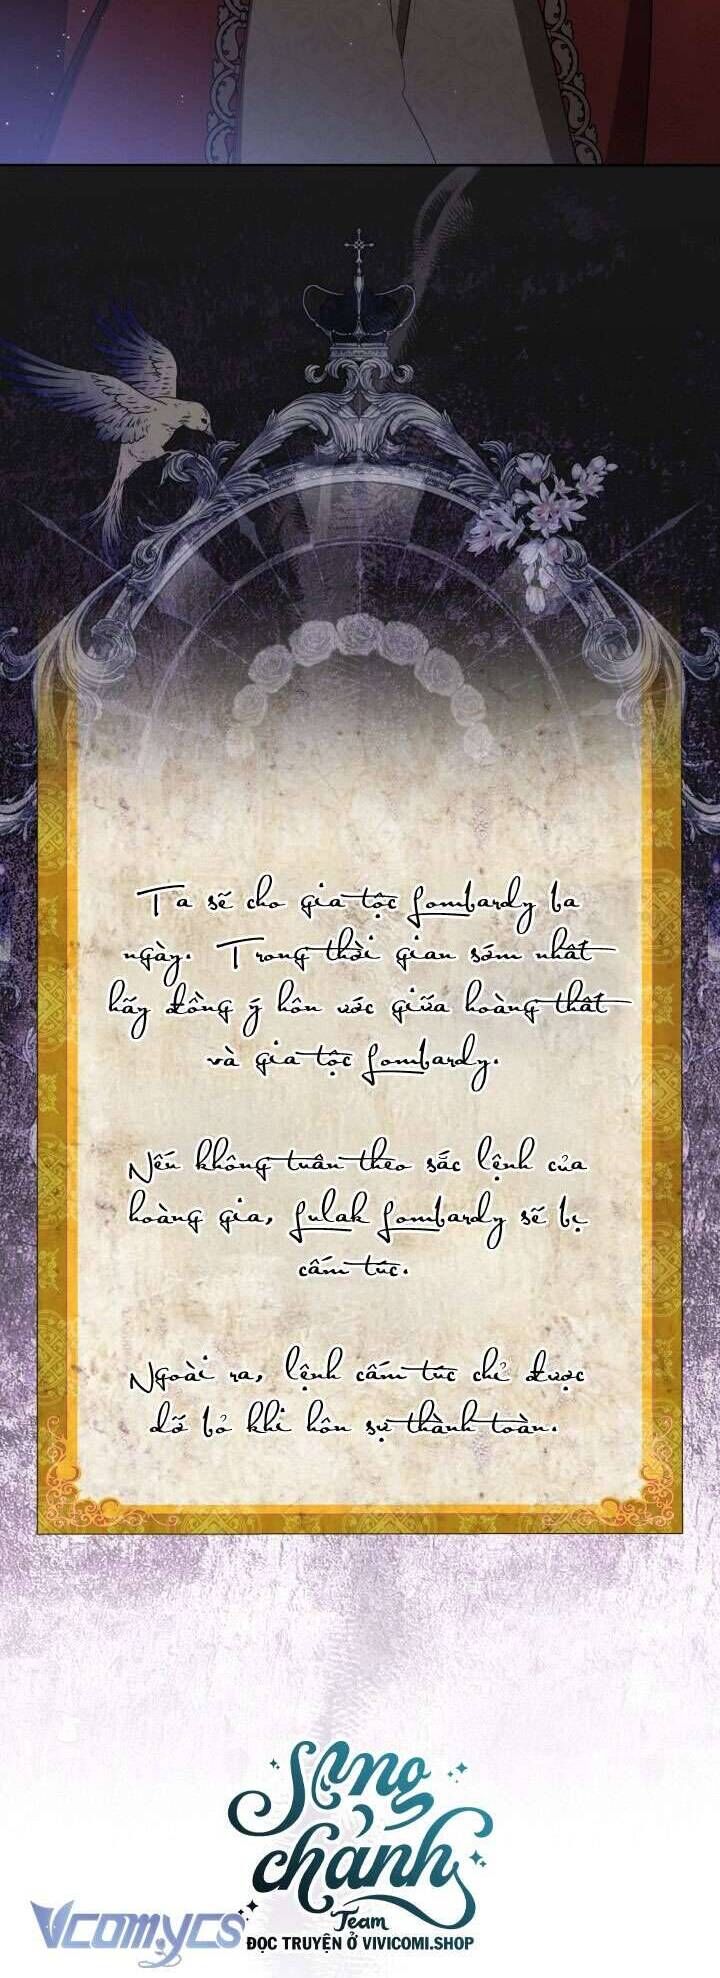 Ta sẽ cho gia tộc Lombardy ba
ngày. Trong thời gian sớm nhất
hãy đồng ý hôn ước giữa hoàng thất
và gia tộc Lombardy.
Nếu không tuân theo sắc lệnh của
hoàng gia, Lulak Lombardy sẽ bị
cấm túc.
Ngoài ra, lệnh cấm túc chỉ được
dỡ bỏ khi hôn sự thành toàn.
Sang
chảnh
Team
Vcomycs
ĐỌC TRUYỆN Ở VIVICOMI.SHOP